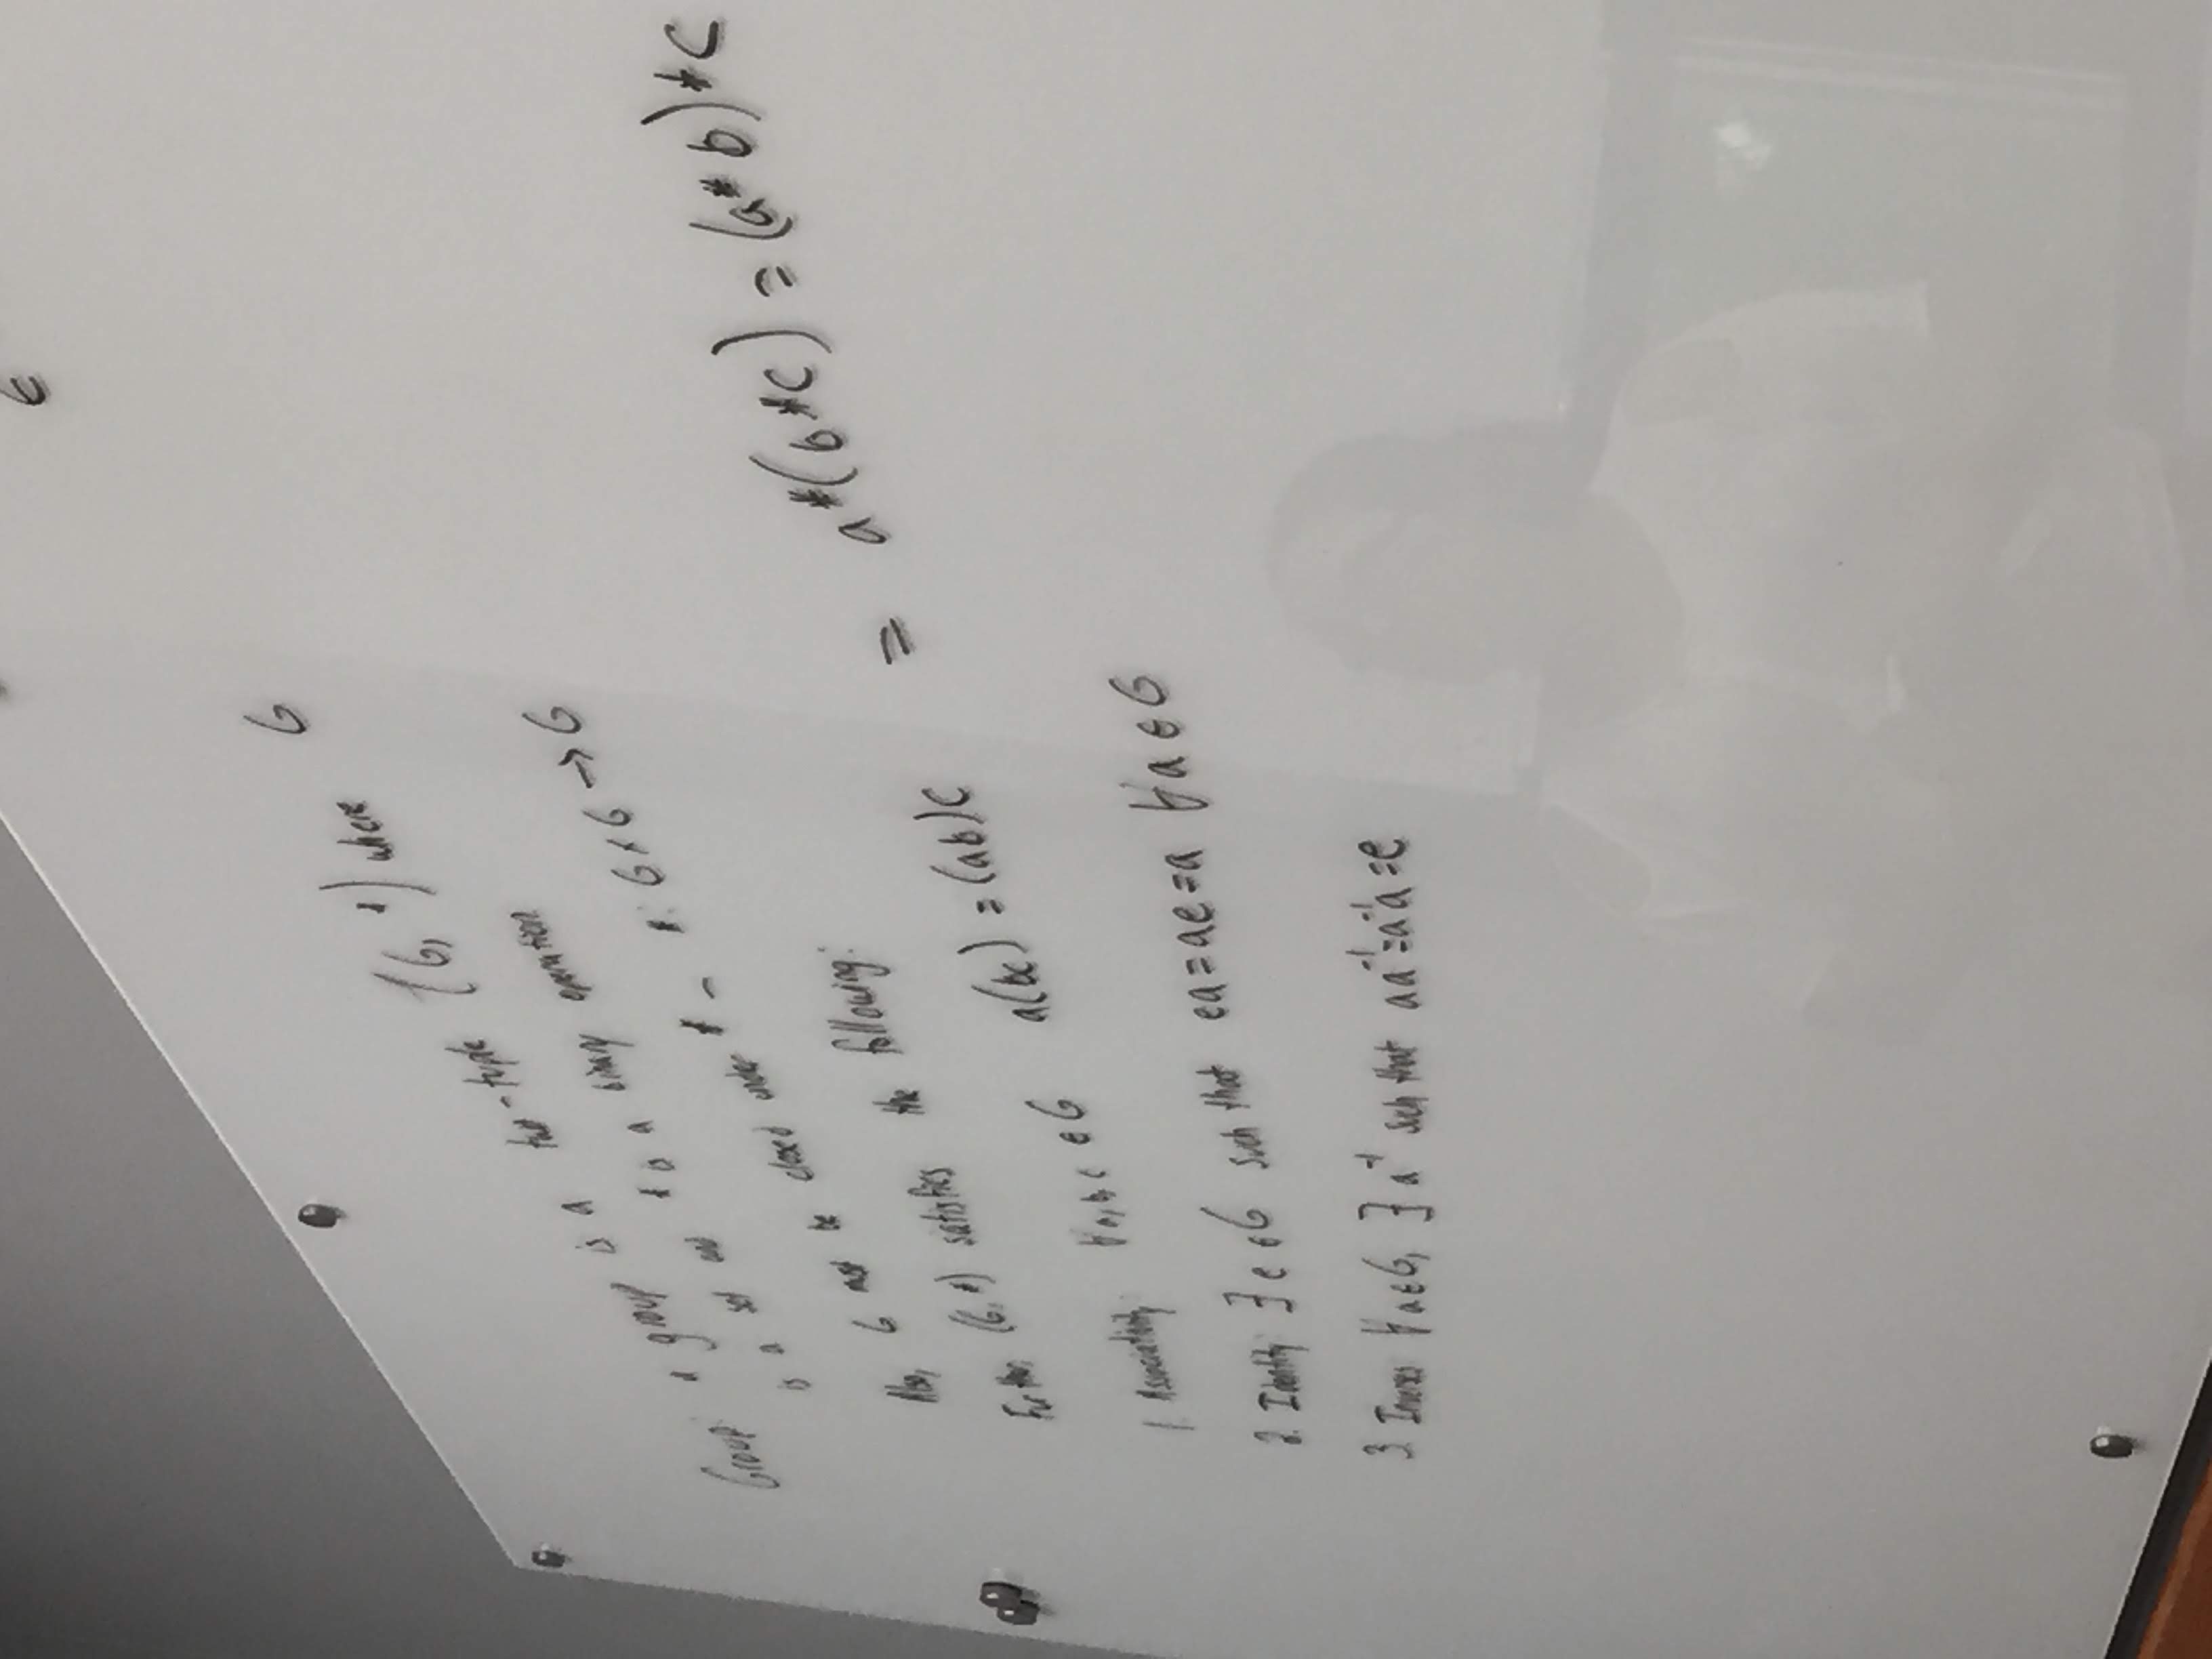 ϵ
Group: a group is a two-tuple (G, *) where G
is a set and * is a binary operation.
Also, G must be closed under * – *: G × G → G
Further, (G, *) satisfies the following:
1. Associativity: ∀a, b, c ∈ G a(bc) = (ab)c = a*(b*c) = (a*b)*c
2. Identity: ∃ e ∈ G such that ea = ae = a ∀a ∈ G
3. Inverses ∀a ∈ G, ∃ a⁻¹ such that aa⁻¹ = a⁻¹a = e